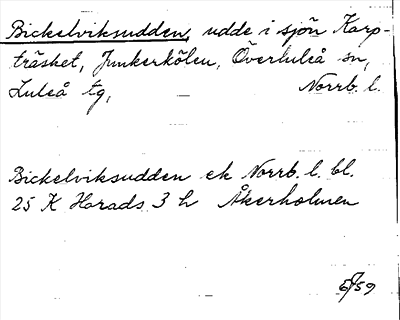 Bickelviksudden, udde i sjön Karp-
träsket, Junkerkölen, Överluleå sn,
Luleå tg, Norrb. l.
Bickelviksudden ek Norrb. l. bl.
25 K Harads 3 h Åkerholmen